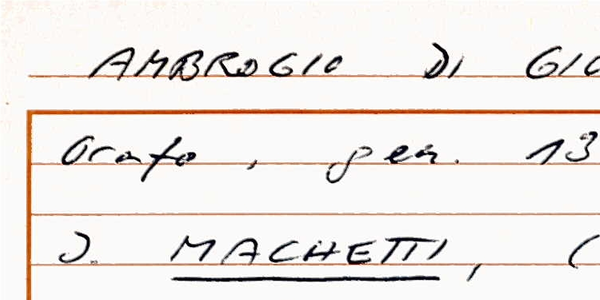 AMBROGIO DI GIO
Orafo, gen. 13
J. MACHETTI, (